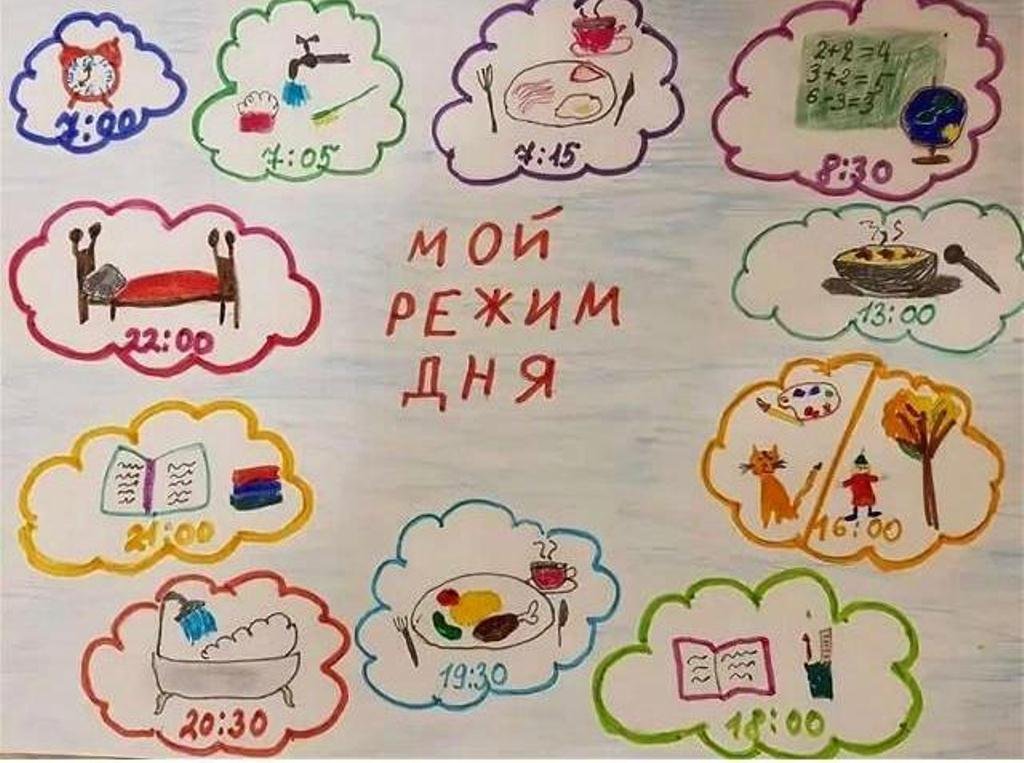 7:00
7:05
7:15
2+2=4
3+2=5
6-3=3
8:30
МОЙ
РЕЖИМ
ДНЯ
22:00
13:00
21:00
16:00
20:30
19:30
18:00